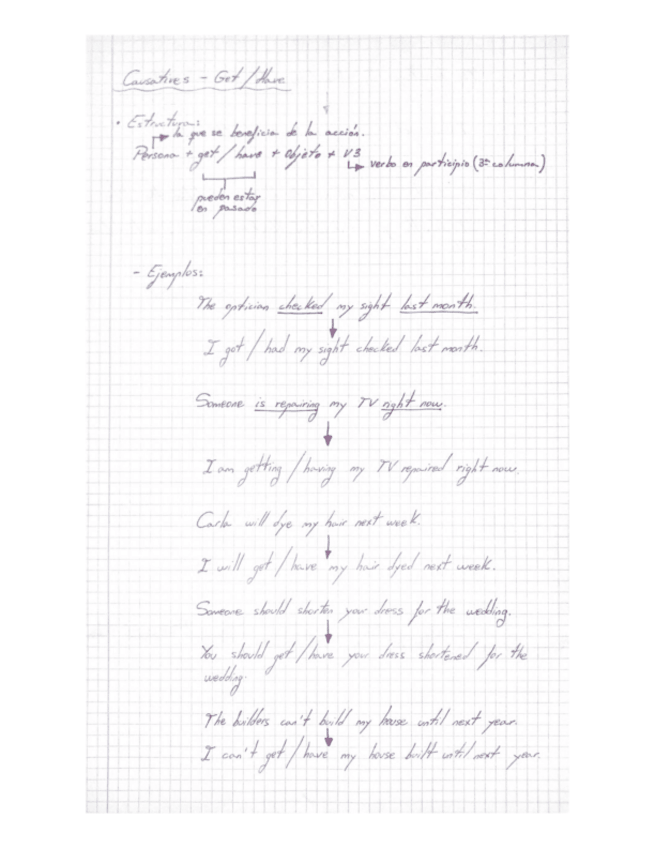 Causatives - Get / Have
• Estructura:
la que se beneficia de la acción.
Persona + get / have + Objeto + V3
verbo en participio (3ª columna)
pueden estar
en pasado
- Ejemplos:
The optician checked my sight last month.
I got / had my sight checked last month.
Someone is repairing my TV right now.
I am getting / having my TV repaired right now.
Carla will dye my hair next week.
I will get / have my hair dyed next week.
Someone should shorten your dress for the wedding.
You should get / have your dress shortened for the
wedding.
The builders can't build my house until next year.
I can't get / have my house built until next year.